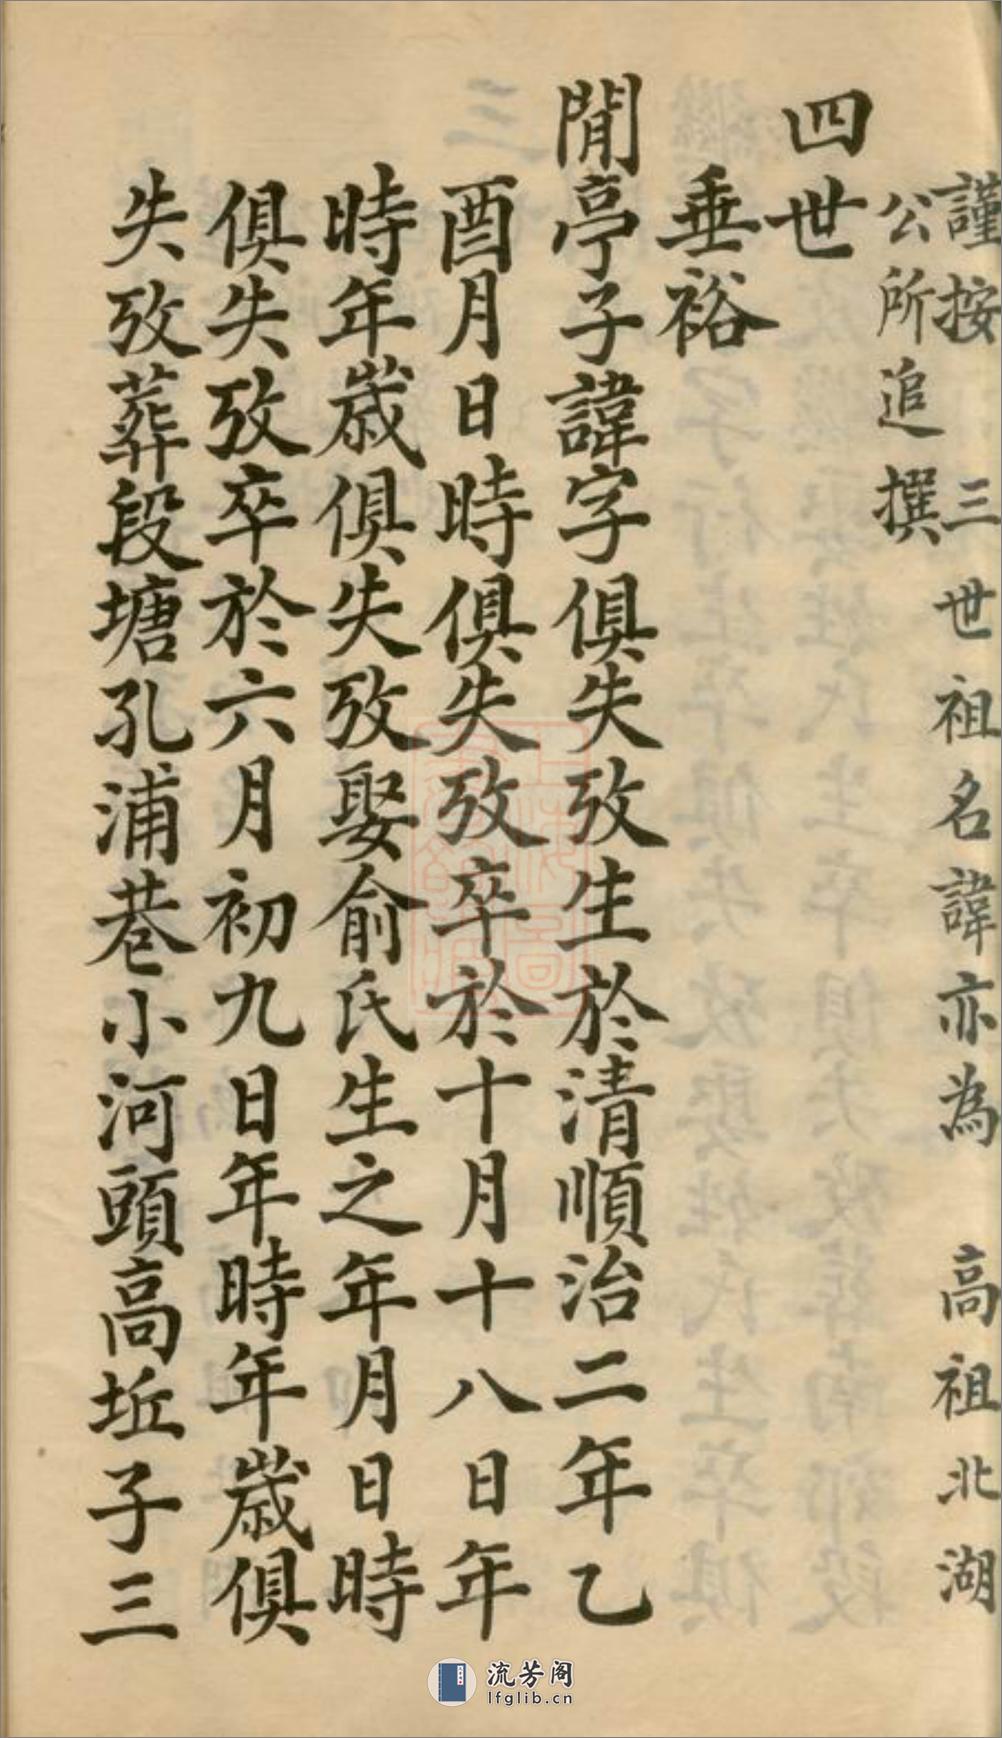 謹按 三世祖名諱亦為 高祖北湖
公所追撰
四世
垂裕
閒亭子諱字俱失攷生於清順治二年乙
酉月日時俱失攷卒於十月十八日年
時年歲俱失攷娶俞氏生之年月日時
俱失攷卒於六月初九日年時年歲俱
失攷葬段塘孔浦巷小河頭高坵子三
流芳阁
lfglib.cn